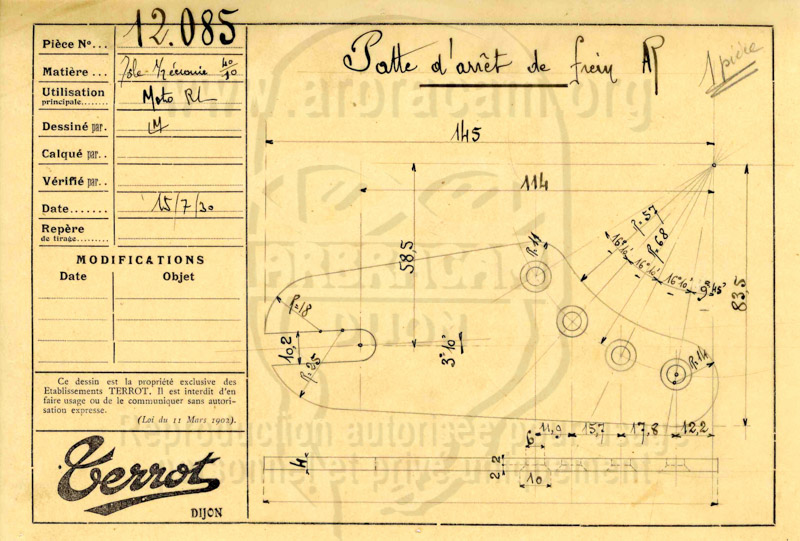 Pièce N°... 12.085
Matière ... Tôle-Mécanie 40/10
Utilisation
principale........ Moto RL
Dessiné par. LM
Calqué par..
Vérifié par..
Date....... 15/7/30
Repère
de tirage........
MODIFICATIONS
Date Objet
Ce dessin est la propriété exclusive des
Etablissements TERROT. Il est interdit d'en
faire usage ou de le communiquer sans autori-
sation expresse.
(Loi du 11 Mars 1902).
Terrot
DIJON
Patte d'arrêt de frein AR
1 pièce
145
114
58,5
R.57
R.68
16°10'
16°10'
16°10'
9°45'
83,5
R.11
R=18
10,2
R.25
3°10'
R.14
11,9 15,7 17,8 12,2
6
4
2 2
10
www.arbracam.org
ARBRACAM
DIJON
Reproduction autorisée pour usage
personnel et privé uniquement